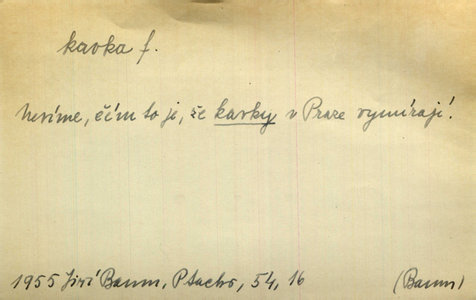 kavka f.
Nevíme, čím to je, že kavky v Praze vymírají.
1955 Jiří Baum, Ptactvo, 54, 16 (Baum)